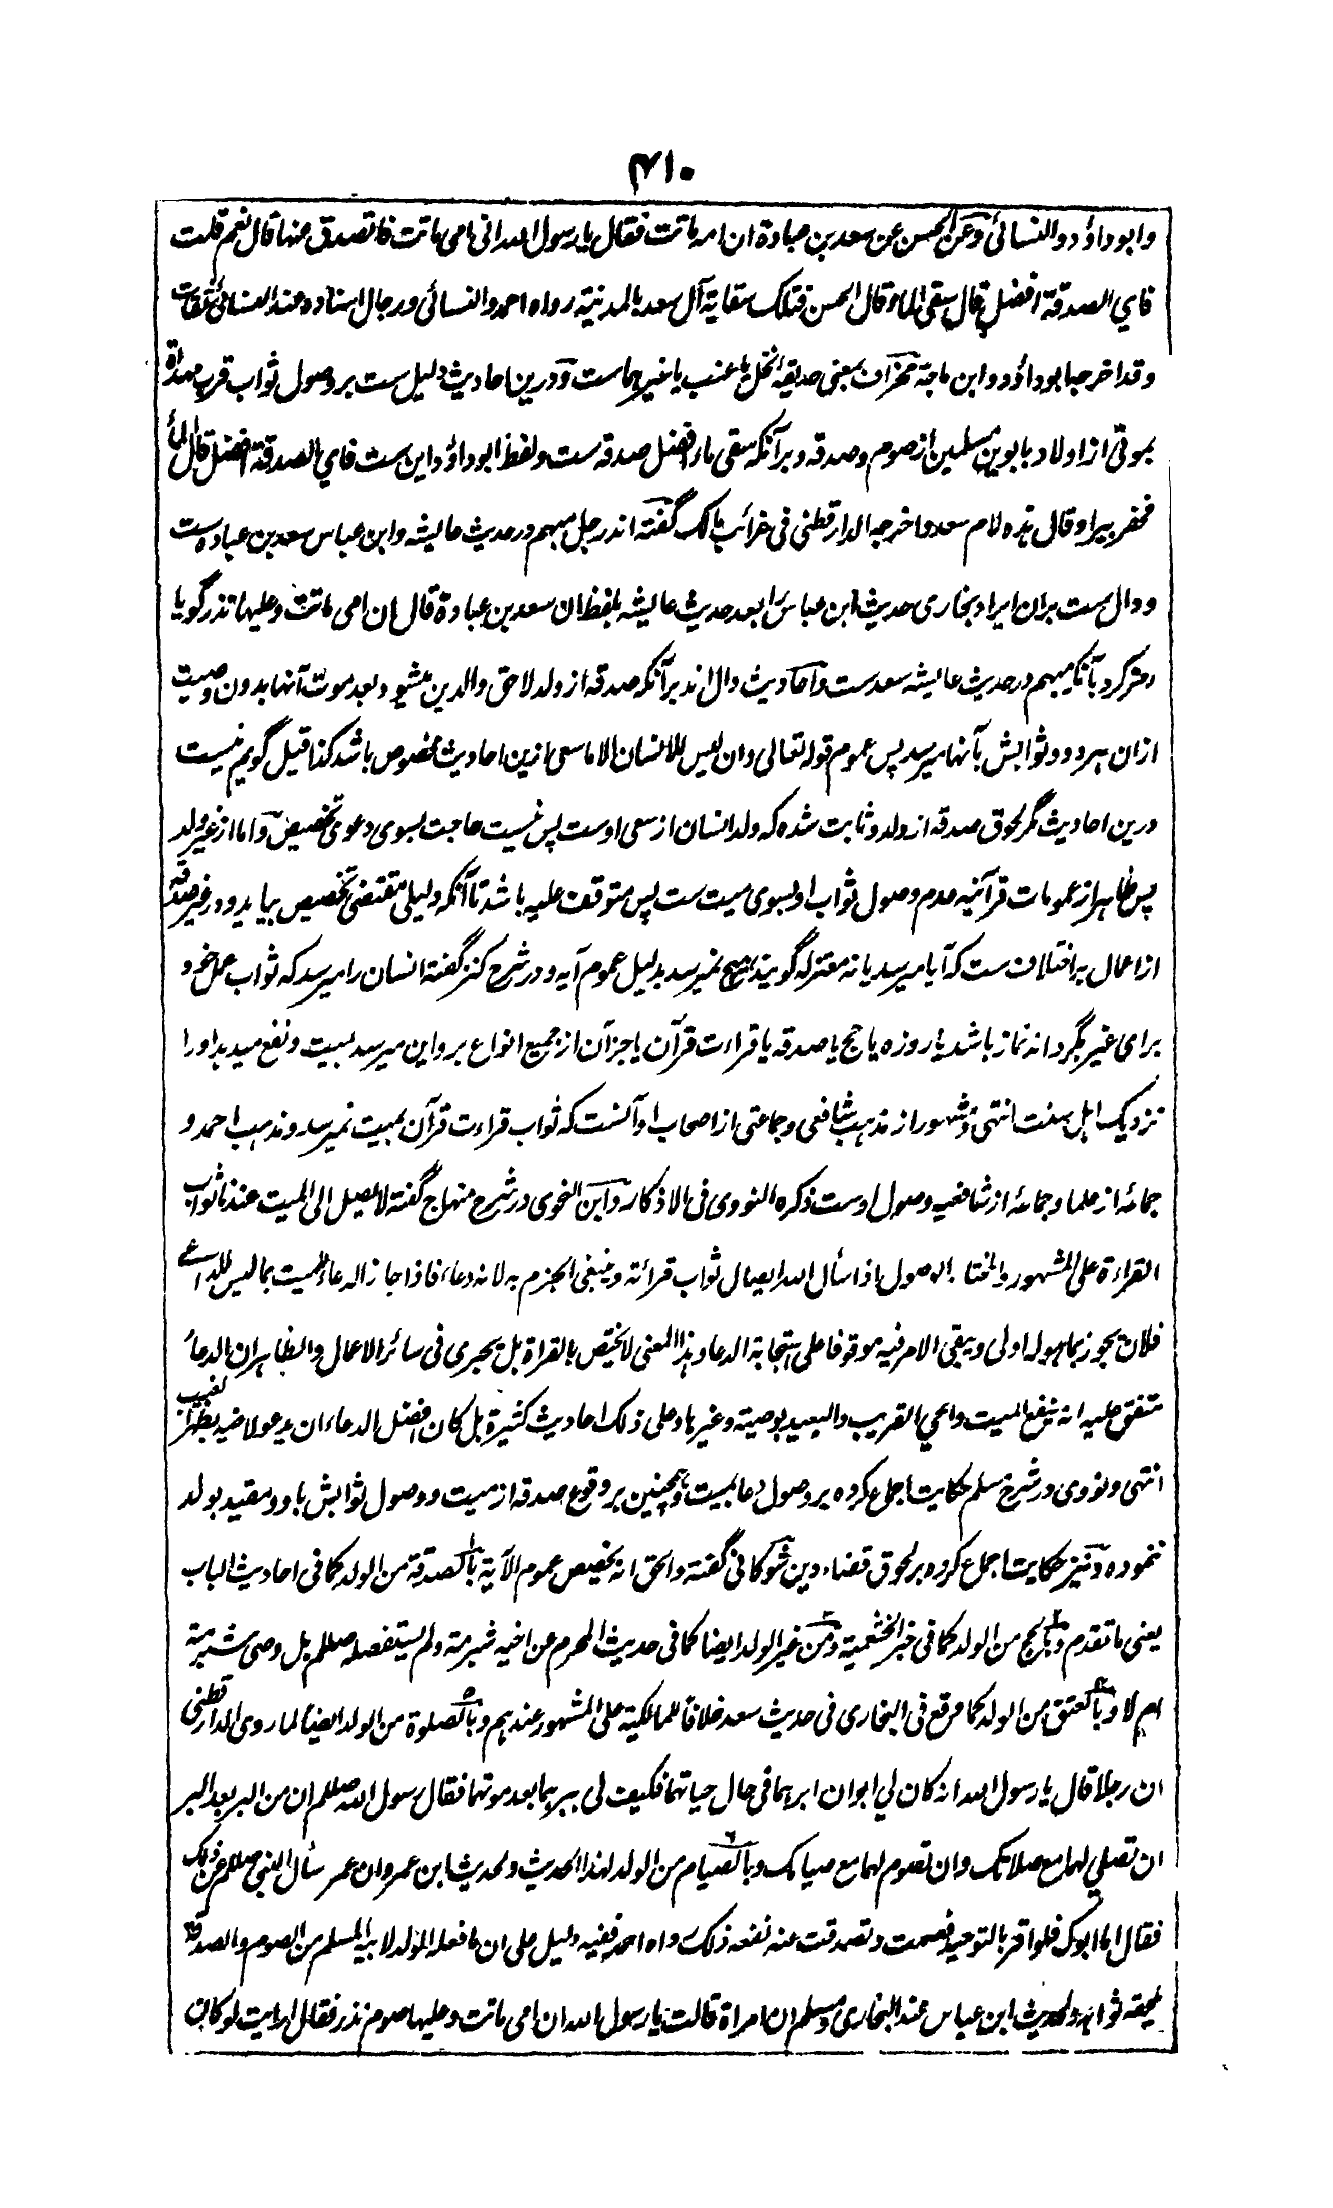 ۴۱۰
وابوداؤد والنسائی وعن الحسن عن سعد بن عبادة ان امه ماتت فقال یا رسول الله انی امی ماتت فاتصدق عنها قال نعم قلت
فای الصدقة افضل قال سقی الماء وقال الحسن فتلک سقایة آل سعد بالمدینة رواه احمد والنسائی ورجال اسناده عند النسائی ثقات
وقد اخرجها ابوداؤد وابن ماجة مخراف بمعنی حدیقه نخل یا عنب یا غیر هماست ودرین احادیث دلیل ست بر وصول ثواب قرب مهداة
بموتی از اولاد یا ابوین مسلمین از صوم وصدقه وبر آنکه سقی ماء افضل صدقه ست ولفظ ابوداؤد این ست فای الصدقة افضل قال الماء
فحفر بیرا وقال هذه لام سعد واخرجه الدارقطنی فی غرائب مالک گفته اند رجل مبهم در حدیث عایشه وابن عباس سعد بن عباده ست
ودال ست بران ایراد بخاری حدیث ابن عباس را بعد حدیث عایشه بلفظ ان سعد بن عبادة قال ان امی ماتت وعلیها نذر گویا
رمز کرد بآنکه مبهم در حدیث عایشه سعد ست واحادیث دال اند بر آنکه صدقه از ولد لاحق والدین میشود بعد موت آنها بدون وصیت
ازان هر دو وثوابش بآنها میرسد پس عموم قوله تعالی وان لیس للانسان الا ما سعی ازین احادیث مخصوص باشد کذا قیل گویم نیست
درین احادیث مگر لحوق صدقه از ولد وثابت شده که ولد انسان از سعی اوست پس نیست حاجت بسوی دعوی تخصیص واما از غیر ولد
پس ظاهر از عمومات قرآنیه عدم وصول ثواب او بسوی میت ست پس متوقف علیه باشد تا آنکه دلیلی مقتضی تخصیص بیاید ودر غیر صدقه
از اعمال بر اختلاف ست که آیا میرسد یا نه معتزله گویند هیچ نمیرسد بدلیل عموم آیه ودر شرح کنز گفته انسان را میرسد که ثواب عمل خود
برای غیر بگرداند نماز باشد یا روزه یا حج یا صدقه یا قراءت قرآن یا جز آن از جمیع انواع بر واین میرسد بمیت ونفع میدهد او را
نزدیک اهل سنت انتهی ومشهور از مذهب شافعی وجماعتی از اصحاب او آنست که ثواب قراءت قرآن بمیت نمیرسد ومذهب احمد و
جماعة از علما وجماعة از شافعیه وصول اوست ذکره النووی فی الاذکار وابن النحوی در شرح منهاج گفته لا یصل الی المیت عندنا ثواب
القراءة علی المشهور والمختار الوصول اذا سأل الله ایصال ثواب قراءته وینبغی الجزم به لانه دعاء فاذا جاز الدعاء للمیت بما لیس للداعی
فلان یجوز بما هو له اولی ویبقی الامر فیه موقوفا علی استجابة الدعاء وهذا المعنی لا یختص بالقراءة بل یجری فی سائر الاعمال والظاهر ان الدعاء
متفق علیه انه ینفع المیت والحی القریب والبعید بوصیة وغیرها وعلی ذلک احادیث کثیرة بل کان افضل الدعاء ان یدعو لاخیه بظهر الغیب
انتهی ونووی در شرح مسلم حکایت اجماع کرده بر وصول دعا بمیت وهمچنین بر وقوع صدقه از میت ووصول ثوابش باو ومقید بولد
ننموده ونیز حکایت اجماع کرده بر لحوق قضاء دین شوکانی گفته والحق انه یخصص عموم الآیة بالصدقة من الولد کما فی احادیث الباب
یعنی ما تقدم وبالحج من الولد کما فی خبر الخثعمیة ومن غیر الولد ایضا کما فی حدیث المحرم عن اخیه شبرمة ولم یستفصله صللم هل وصی شبرمة
ام لا وبالعتق من الولد کما وقع فی البخاری فی حدیث سعد خلافا للمالکیة علی المشهور عندهم وبالصلوة من الولد ایضا لما روی الدارقطنی
ان رجلا قال یا رسول الله انه کان لی ابوان ابرهما فی حال حیاتهما فکیف لی ببرهما بعد موتهما فقال رسول الله صللم ان من البر بعد البر
ان تصلی لهما مع صلاتک وان تصوم لهما مع صیامک وبالصیام من الولد لهذا الحدیث ولحدیث ابن عمرو ان عمر سأل النبی صللم عن ذلک
فقال اما ابوک فلو اقر بالتوحید فصمت وتصدقت عنه نفعه ذلک رواه احمد ففیه دلیل علی ان ما فعله الولد لابیه المسلم من الصوم والصدقة
یلحقه ثوابه ولحدیث ابن عباس عند البخاری ومسلم ان امراة قالت یا رسول الله ان امی ماتت وعلیها صوم نذر فقال ارایت لو کان